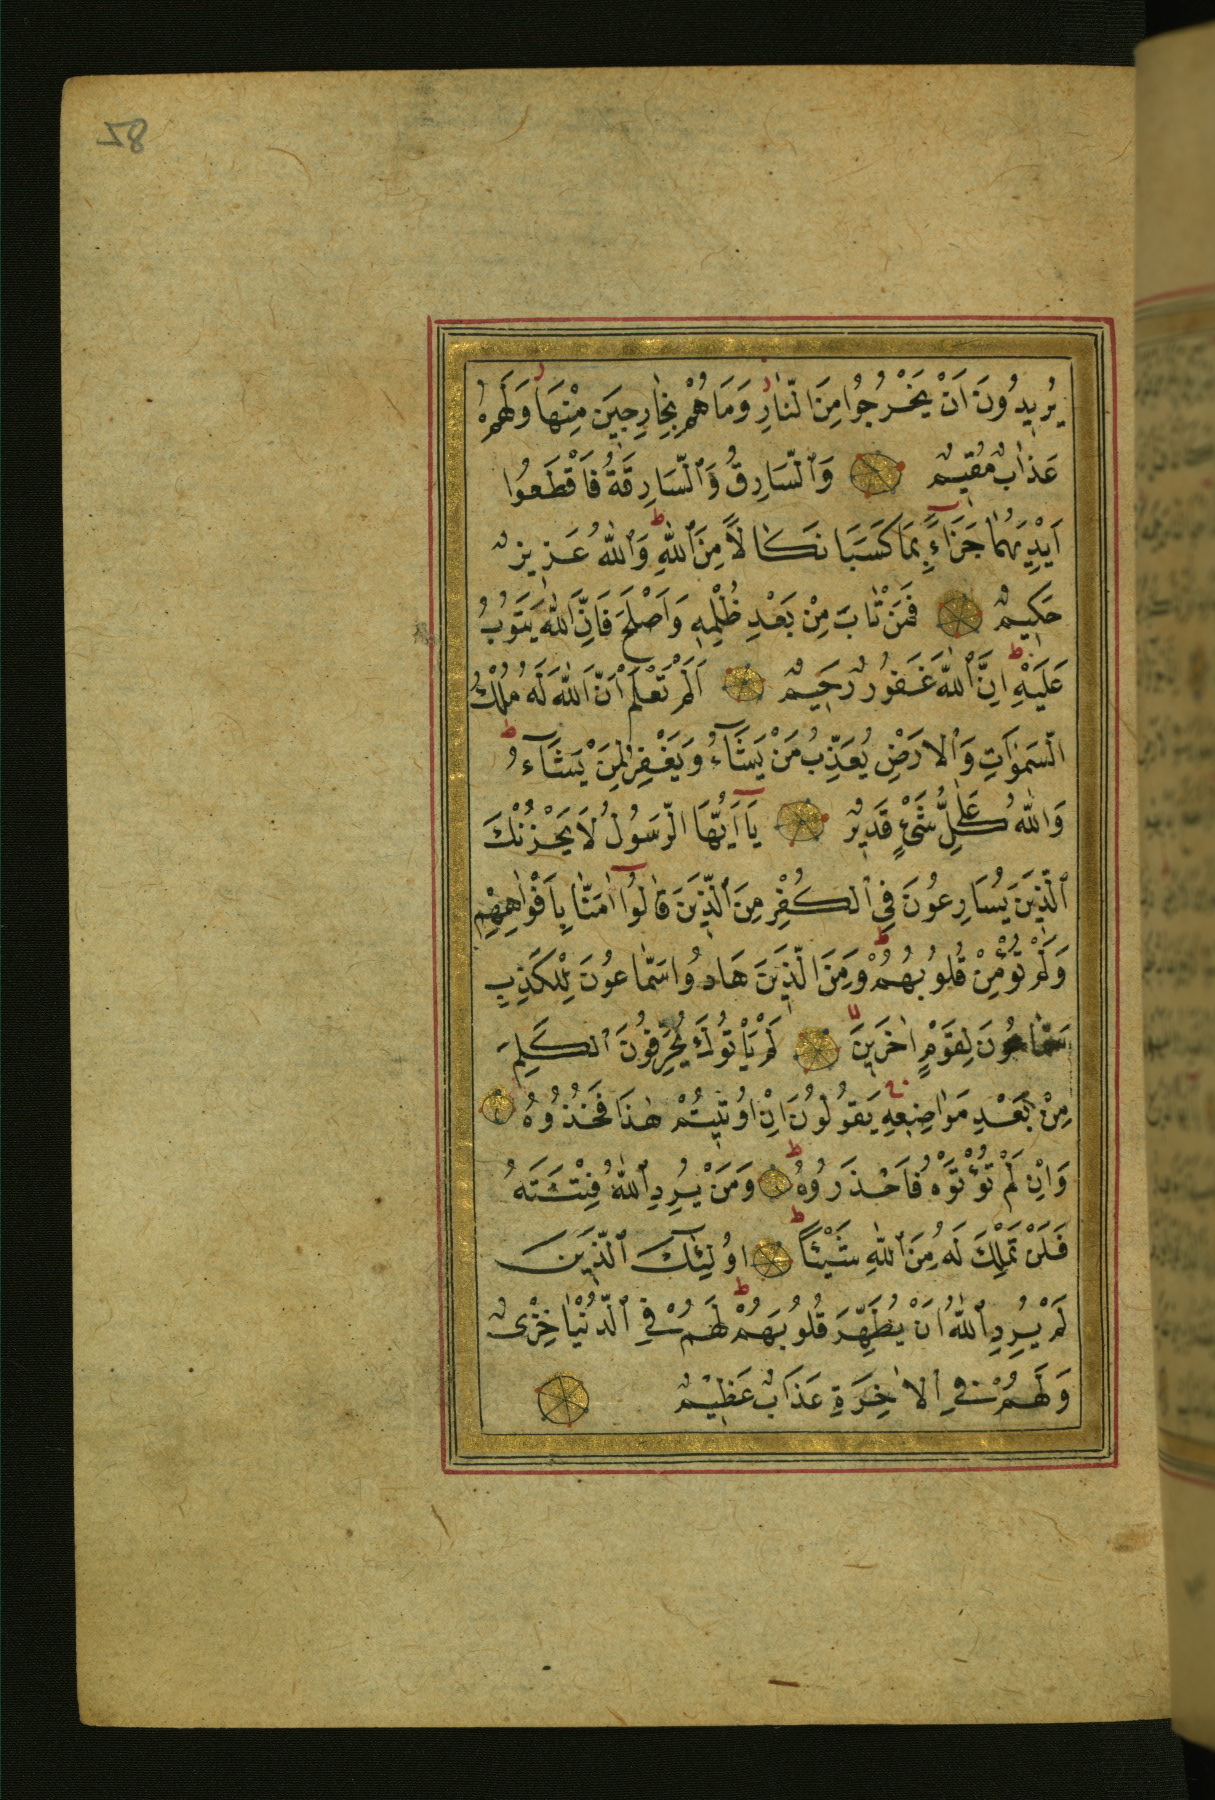 58
يُرِيدُونَ اَنْ يَخْرُجُوا مِنَ النَّارِ وَمَا هُمْ بِخَارِجِينَ مِنْهَا وَلَهُمْ
عَذَابٌ مُقِيمٌ وَالسَّارِقُ وَالسَّارِقَةُ فَاقْطَعُوا
اَيْدِيَهُمَا جَزَاءً بِمَا كَسَبَا نَكَالًا مِنَ اللّٰهِ وَاللّٰهُ عَزِيزٌ
حَكِيمٌ فَمَنْ تَابَ مِنْ بَعْدِ ظُلْمِهِ وَاَصْلَحَ فَاِنَّ اللّٰهَ يَتُوبُ
عَلَيْهِ اِنَّ اللّٰهَ غَفُورٌ رَحِيمٌ اَلَمْ تَعْلَمْ اَنَّ اللّٰهَ لَهُ مُلْكُ
السَّمٰوَاتِ وَالْاَرْضِ يُعَذِّبُ مَنْ يَشَاءُ وَيَغْفِرُ لِمَنْ يَشَاءُ
وَاللّٰهُ عَلٰى كُلِّ شَىْءٍ قَدِيرٌ يَا اَيُّهَا الرَّسُولُ لَا يَحْزُنْكَ
الَّذِينَ يُسَارِعُونَ فِي الْكُفْرِ مِنَ الَّذِينَ قَالُوا اٰمَنَّا بِاَفْوَاهِهِمْ
وَلَمْ تُؤْمِنْ قُلُوبُهُمْ وَمِنَ الَّذِينَ هَادُوا سَمَّاعُونَ لِلْكَذِبِ
سَمَّاعُونَ لِقَوْمٍ اٰخَرِينَ لَمْ يَأْتُوكَ يُحَرِّفُونَ الْكَلِمَ
مِنْ بَعْدِ مَوَاضِعِهِ يَقُولُونَ اِنْ اُوتِيتُمْ هٰذَا فَخُذُوهُ
وَاِنْ لَمْ تُؤْتَوْهُ فَاحْذَرُوهُ وَمَنْ يُرِدِ اللّٰهُ فِتْنَتَهُ
فَلَنْ تَمْلِكَ لَهُ مِنَ اللّٰهِ شَيْئًا اُولٰئِكَ الَّذِينَ
لَمْ يُرِدِ اللّٰهُ اَنْ يُطَهِّرَ قُلُوبَهُمْ لَهُمْ فِي الدُّنْيَا خِزْىٌ
وَلَهُمْ فِي الْاٰخِرَةِ عَذَابٌ عَظِيمٌ